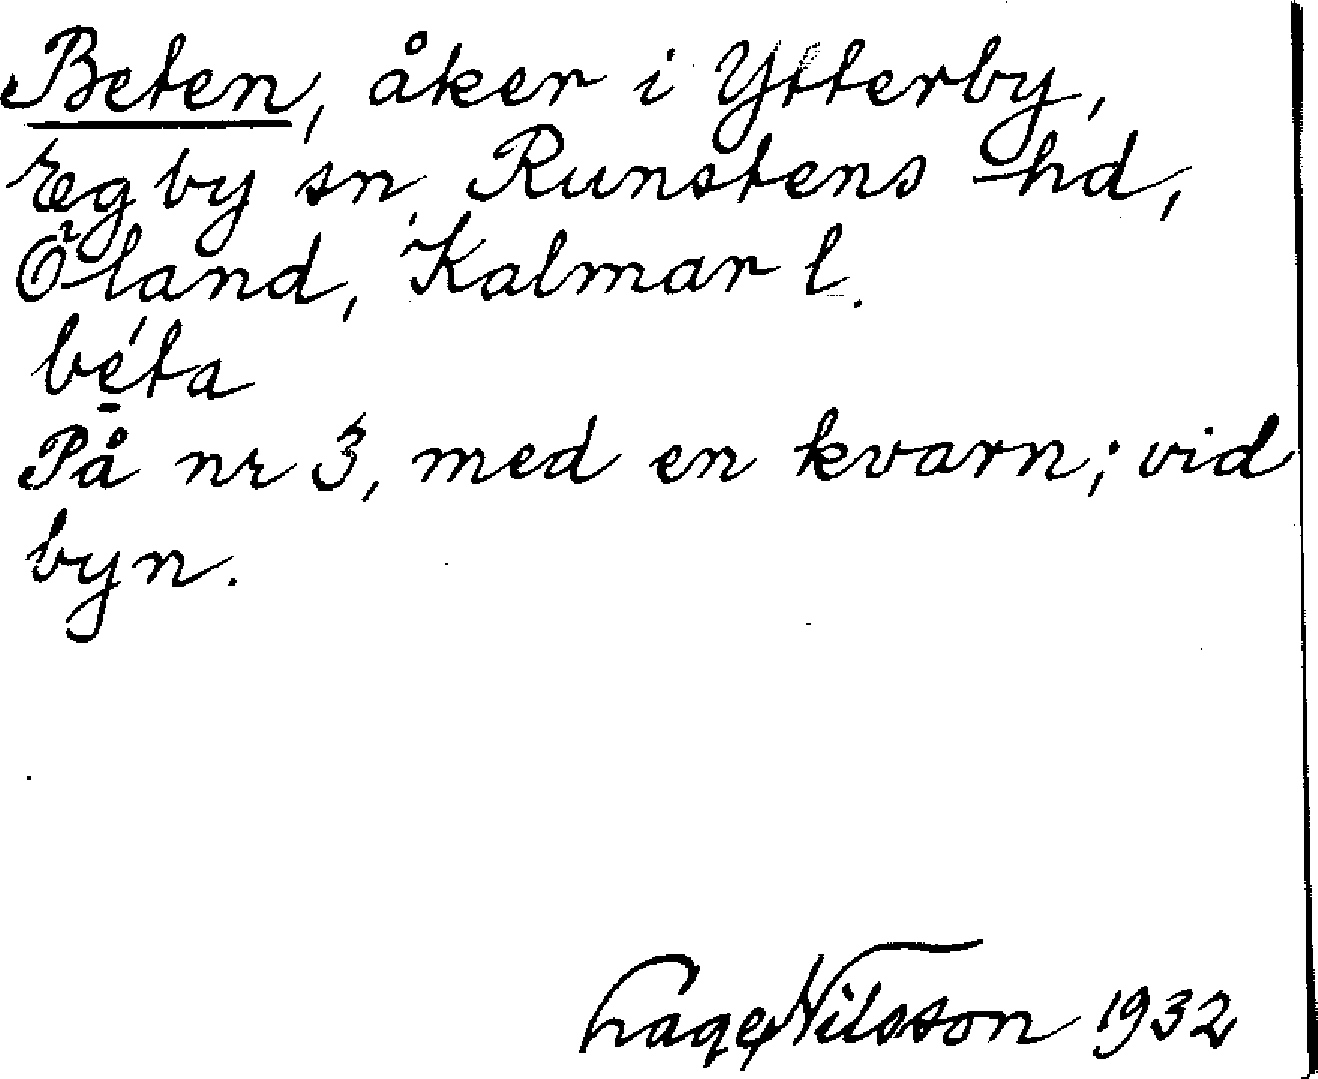 Beten, åker i Ytterby,
Egby sn, Runstens hd,
Öland, Kalmar l.
béta
På nr 3, med en kvarn; vid
byn.
Nilsson 1932